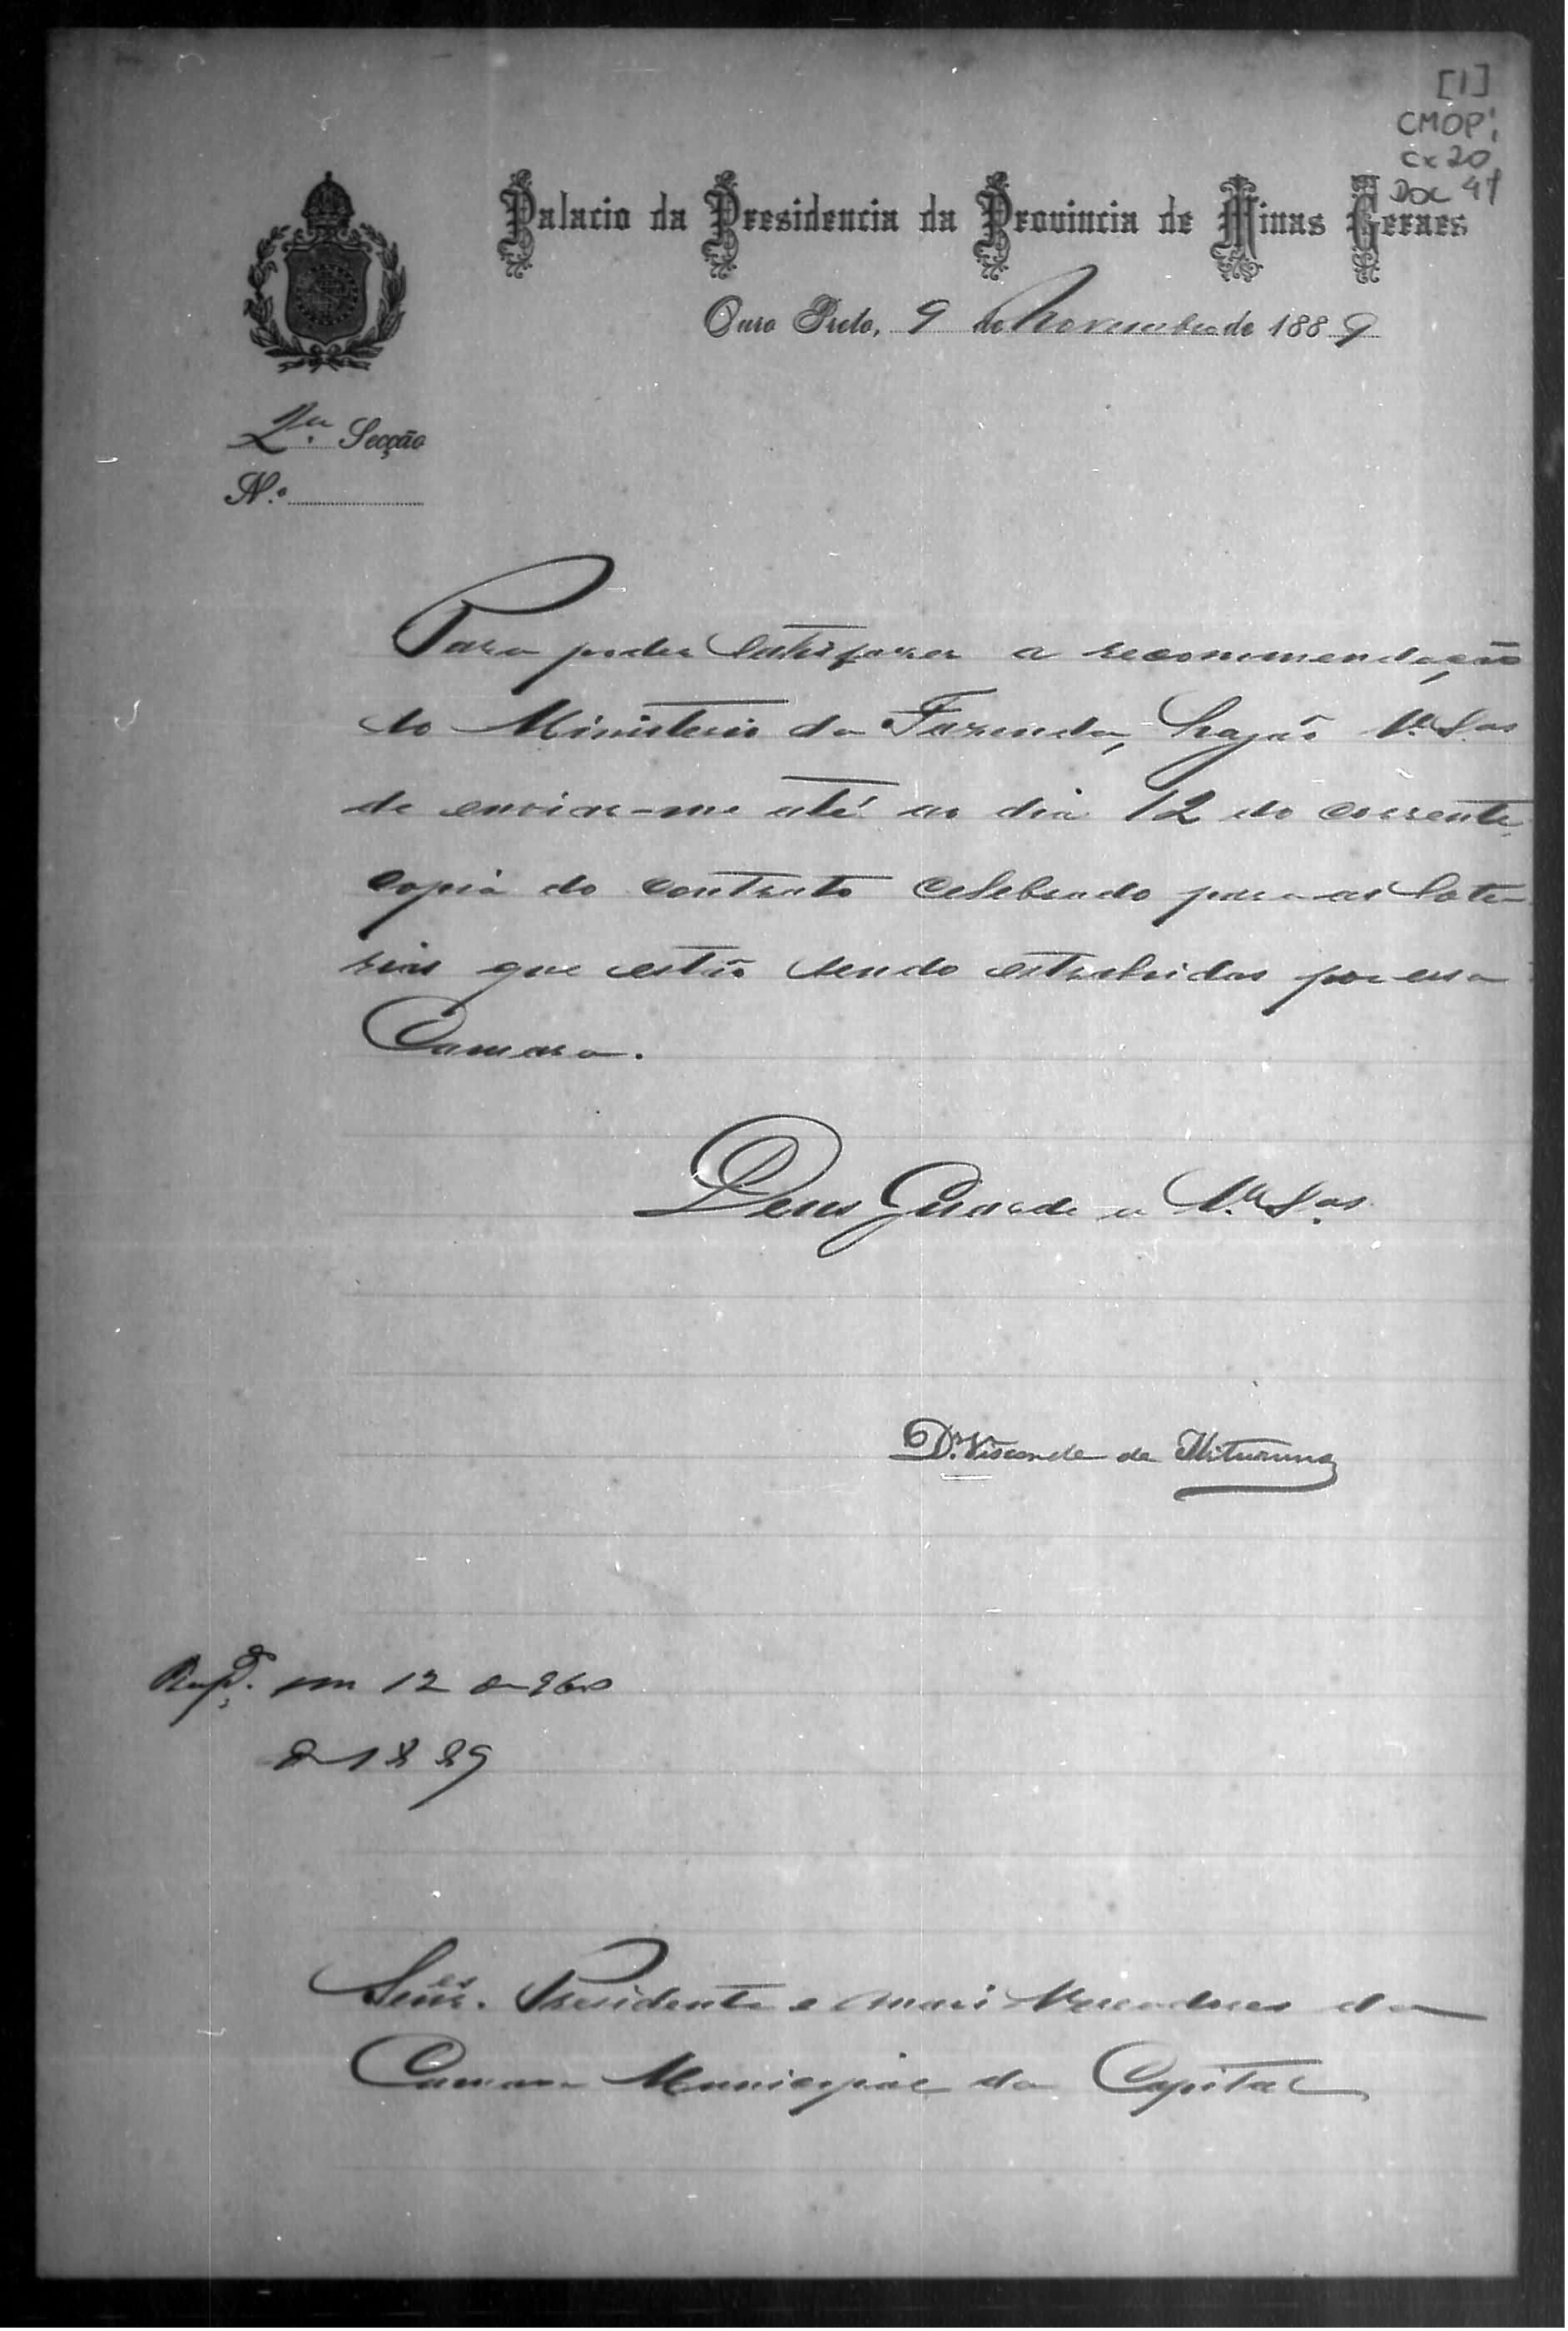 [1]
CMOP,
Cx 20
Doc 41
Palacio da Presidencia da Provincia de Minas Geraes
Ouro Preto, 9 de Novembro de 1889
2.ª Secção
N.º
Para poder satisfazer a recommendação
do Ministerio da Fazenda, hajão V.as S.as
de enviar-me até ao dia 12 do corrente,
copia do contrato celebrado para as lote-
rias que estão sendo extrahidas por essa
Camara.
Deus Guarde a V.as S.as
Dr. Visconde de Ibituruna
Resp.da em 12 de 9bro
de 1889
Senr.es Presidente e mais Vereadores da
Camara Municipal da Capital